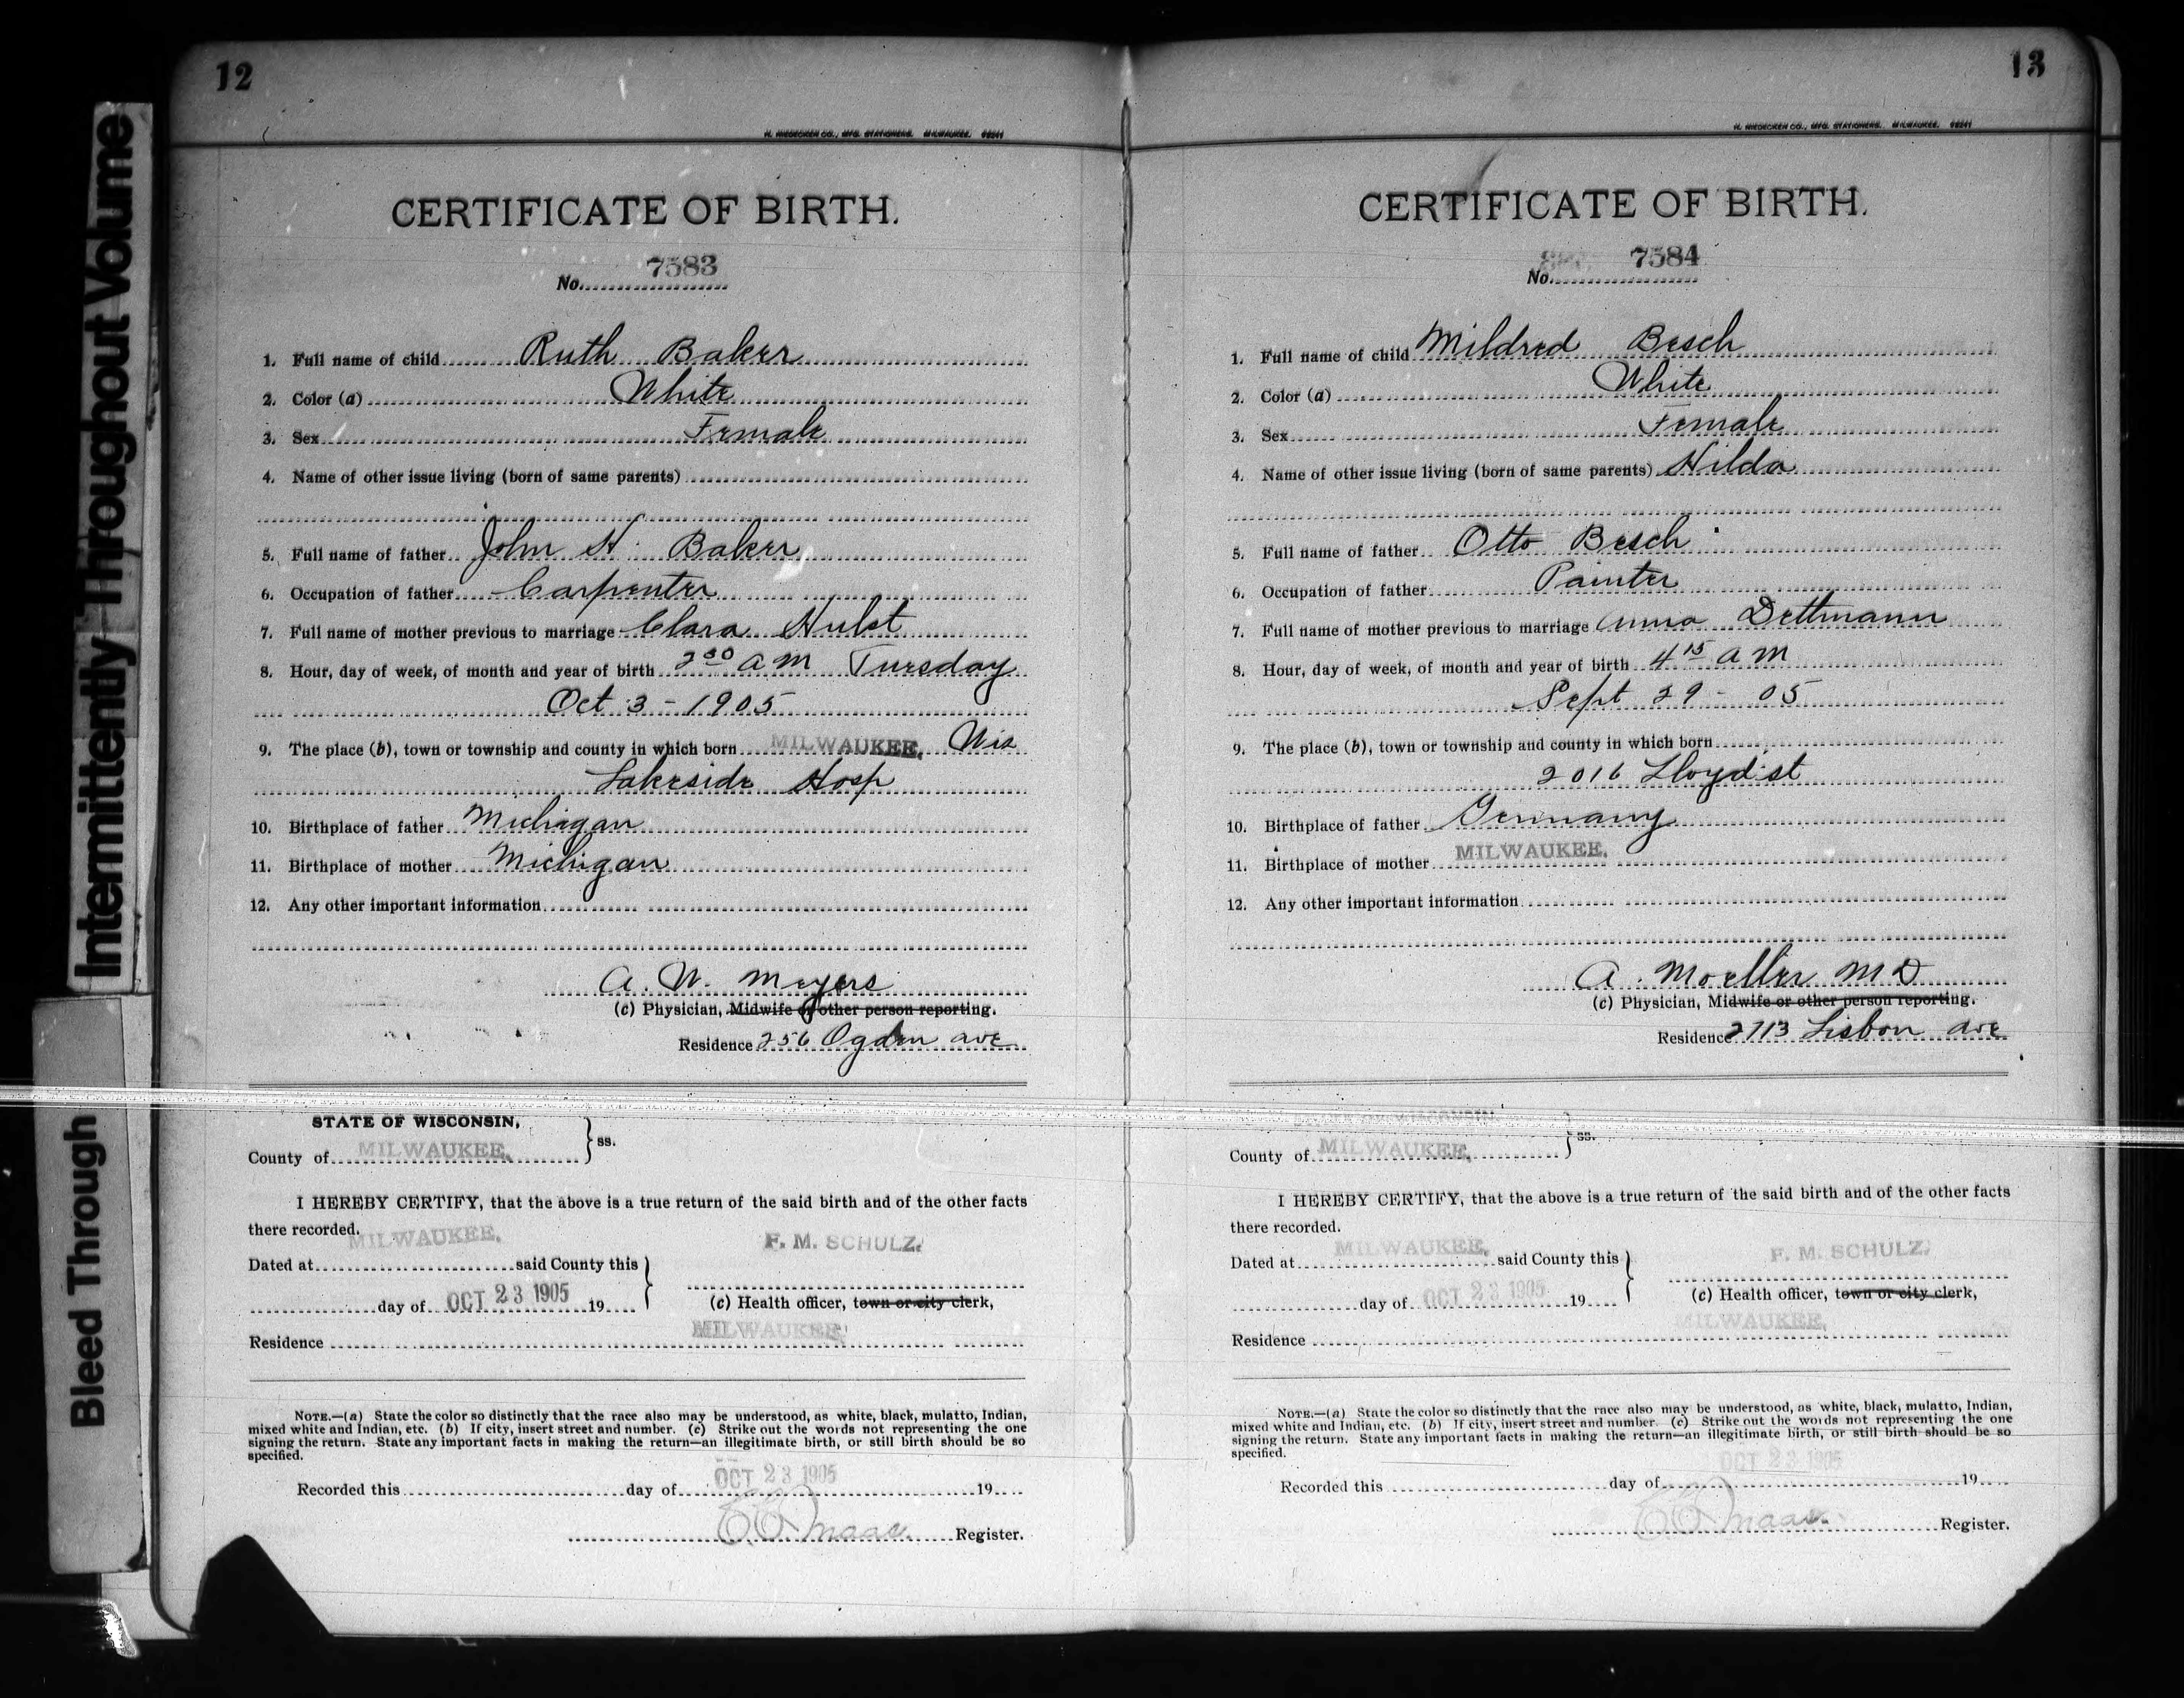 Intermittently Throughout Volume
Bleed Through
12
H. NIEDECKEN CO., MFG. STATIONERS. MILWAUKEE. 98241
CERTIFICATE OF BIRTH.
No. 7583
1. Full name of child Ruth Baker
2. Color (a) White
3. Sex Female
4. Name of other issue living (born of same parents)
5. Full name of father John H. Baker
6. Occupation of father Carpenter
7. Full name of mother previous to marriage Clara Hulst
8. Hour, day of week, of month and year of birth 2 30 AM Tuesday
Oct 3 - 1905
9. The place (b), town or township and county in which born MILWAUKEE. Wis
Lakeside Hosp
10. Birthplace of father Michigan
11. Birthplace of mother Michigan
12. Any other important information
A. W. Meyers
(c) Physician, Midwife or other person reporting.
Residence 256 Ogden ave
STATE OF WISCONSIN,
County of MILWAUKEE. } ss.
I HEREBY CERTIFY, that the above is a true return of the said birth and of the other facts
there recorded.
MILWAUKEE. F. M. SCHULZ.
Dated at said County this
day of OCT 23 1905 19 (c) Health officer, town or city clerk,
MILWAUKEE.
Residence
NOTE.—(a) State the color so distinctly that the race also may be understood, as white, black, mulatto, Indian,
mixed white and Indian, etc. (b) If city, insert street and number. (c) Strike out the words not representing the one
signing the return. State any important facts in making the return—an illegitimate birth, or still birth should be so
specified.
Recorded this day of OCT 23 1905 19
Register.
13
H. NIEDECKEN CO., MFG. STATIONERS. MILWAUKEE. 98241
CERTIFICATE OF BIRTH.
No. 7584
1. Full name of child Mildred Besch
2. Color (a) White
3. Sex Female
4. Name of other issue living (born of same parents) Hilda
5. Full name of father Otto Besch
6. Occupation of father Painter
7. Full name of mother previous to marriage Anna Dettmann
8. Hour, day of week, of month and year of birth 4 15 AM
Sept 29 - 05
9. The place (b), town or township and county in which born
2016 Lloyd st
10. Birthplace of father Germany
11. Birthplace of mother MILWAUKEE.
12. Any other important information
A. Moeller MD
(c) Physician, Midwife or other person reporting.
Residence 2713 Lisbon ave
County of MILWAUKEE. } ss.
I HEREBY CERTIFY, that the above is a true return of the said birth and of the other facts
there recorded.
MILWAUKEE. F. M. SCHULZ.
Dated at said County this
day of OCT 23 1905 19 (c) Health officer, town or city clerk,
MILWAUKEE.
Residence
NOTE.—(a) State the color so distinctly that the race also may be understood, as white, black, mulatto, Indian,
mixed white and Indian, etc. (b) If city, insert street and number. (c) Strike out the words not representing the one
signing the return. State any important facts in making the return—an illegitimate birth, or still birth should be so
specified.
OCT 23 1905
Recorded this day of 19
Register.